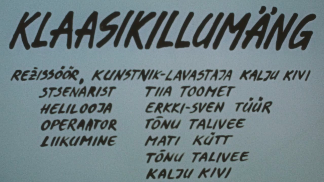 KLAASIKILLUMÄNG
REŽISSÖÖR, KUNSTNIK-LAVASTAJA KALJU KIVI
STSENARIST TIIA TOOMET
HELILOOJA ERKKI-SVEN TÜÜR
OPERAATOR TÕNU TALIVEE
LIIKUMINE MATI KÜTT
TÕNU TALIVEE
KALJU KIVI